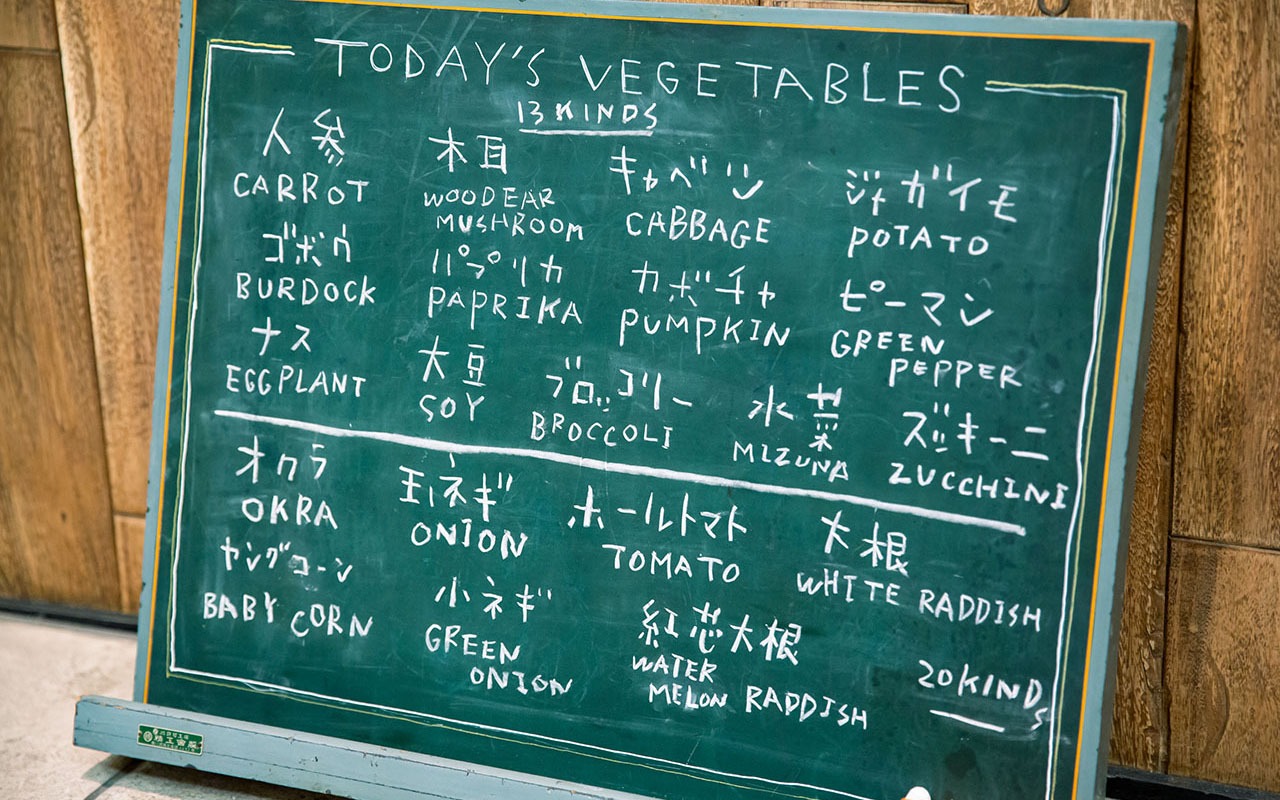 TODAY'S VEGETABLES
13 KINDS
人参
CARROT
木耳
WOODEAR
MUSHROOM
キャベツ
CABBAGE
ジャガイモ
POTATO
ゴボウ
BURDOCK
パプリカ
PAPRIKA
カボチャ
PUMPKIN
ピーマン
GREEN
PEPPER
ナス
EGGPLANT
大豆
SOY
ブロッコリー
BROCCOLI
水菜
MIZUNA
ズッキーニ
ZUCCHINI
オクラ
OKRA
玉ネギ
ONION
ホールトマト
TOMATO
大根
WHITE RADDISH
ヤングコーン
BABY CORN
小ネギ
GREEN
ONION
紅芯大根
WATER
MELON RADDISH
20 KINDS